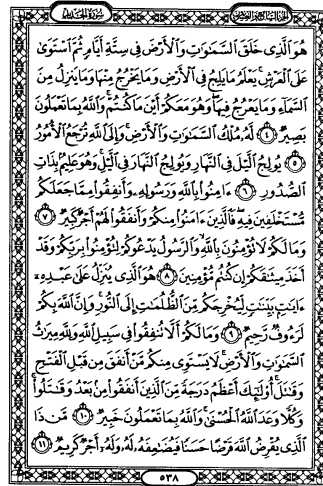 سورة الحديد
الجزء السابع والعشرون
هُوَ ٱلَّذِى خَلَقَ ٱلسَّمَٰوَٰتِ وَٱلْأَرْضَ فِى سِتَّةِ أَيَّامٍ ثُمَّ ٱسْتَوَىٰ
عَلَى ٱلْعَرْشِ يَعْلَمُ مَا يَلِجُ فِى ٱلْأَرْضِ وَمَا يَخْرُجُ مِنْهَا وَمَا يَنزِلُ مِنَ
ٱلسَّمَآءِ وَمَا يَعْرُجُ فِيهَا وَهُوَ مَعَكُمْ أَيْنَ مَا كُنتُمْ وَٱللَّهُ بِمَا تَعْمَلُونَ
بَصِيرٌ ٤ لَّهُۥ مُلْكُ ٱلسَّمَٰوَٰتِ وَٱلْأَرْضِ وَإِلَى ٱللَّهِ تُرْجَعُ ٱلْأُمُورُ
٥ يُولِجُ ٱلَّيْلَ فِى ٱلنَّهَارِ وَيُولِجُ ٱلنَّهَارَ فِى ٱلَّيْلِ وَهُوَ عَلِيمٌۢ بِذَاتِ
ٱلصُّدُورِ ٦ ءَامِنُوا۟ بِٱللَّهِ وَرَسُولِهِۦ وَأَنفِقُوا۟ مِمَّا جَعَلَكُم
مُّسْتَخْلَفِينَ فِيهِ فَٱلَّذِينَ ءَامَنُوا۟ مِنكُمْ وَأَنفَقُوا۟ لَهُمْ أَجْرٌ كَبِيرٌ ٧
وَمَا لَكُمْ لَا تُؤْمِنُونَ بِٱللَّهِ وَٱلرَّسُولُ يَدْعُوكُمْ لِتُؤْمِنُوا۟ بِرَبِّكُمْ وَقَدْ
أَخَذَ مِيثَٰقَكُمْ إِن كُنتُم مُّؤْمِنِينَ ٨ هُوَ ٱلَّذِى يُنَزِّلُ عَلَىٰ عَبْدِهِۦٓ
ءَايَٰتٍۭ بَيِّنَٰتٍ لِّيُخْرِجَكُم مِّنَ ٱلظُّلُمَٰتِ إِلَى ٱلنُّورِ وَإِنَّ ٱللَّهَ بِكُمْ
لَرَءُوفٌ رَّحِيمٌ ٩ وَمَا لَكُمْ أَلَّا تُنفِقُوا۟ فِى سَبِيلِ ٱللَّهِ وَلِلَّهِ مِيرَٰثُ
ٱلسَّمَٰوَٰتِ وَٱلْأَرْضِ لَا يَسْتَوِى مِنكُم مَّنْ أَنفَقَ مِن قَبْلِ ٱلْفَتْحِ
وَقَٰتَلَ أُو۟لَٰٓئِكَ أَعْظَمُ دَرَجَةً مِّنَ ٱلَّذِينَ أَنفَقُوا۟ مِنۢ بَعْدُ وَقَٰتَلُوا۟
وَكُلًّا وَعَدَ ٱللَّهُ ٱلْحُسْنَىٰ وَٱللَّهُ بِمَا تَعْمَلُونَ خَبِيرٌ ١٠ مَّن ذَا
ٱلَّذِى يُقْرِضُ ٱللَّهَ قَرْضًا حَسَنًا فَيُضَٰعِفَهُۥ لَهُۥ وَلَهُۥٓ أَجْرٌ كَرِيمٌ ١١
٥٣٨